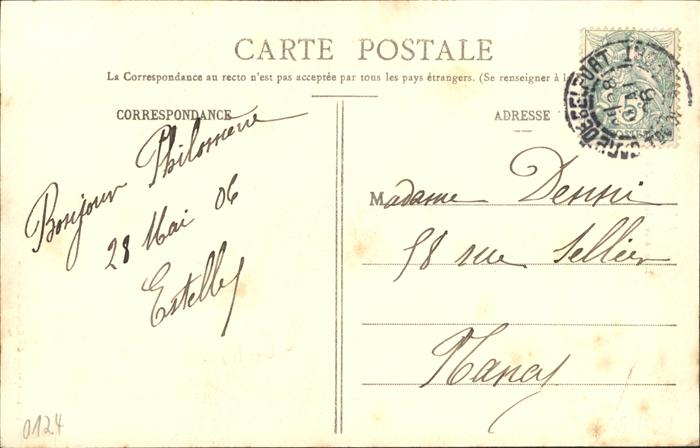 CARTE POSTALE
La Correspondance au recto n'est pas acceptée par tous les pays étrangers. (Se renseigner à la
CORRESPONDANCE
ADRESSE
Bonjour Philomène
28 Mai 06
Estelle
Madame Denni
58 rue Sellier
Nancy
5c
POSTES
BELFORT
0124